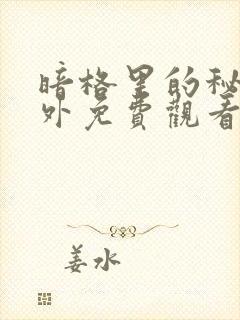 暗格里的秘
外免費觀看
姜水